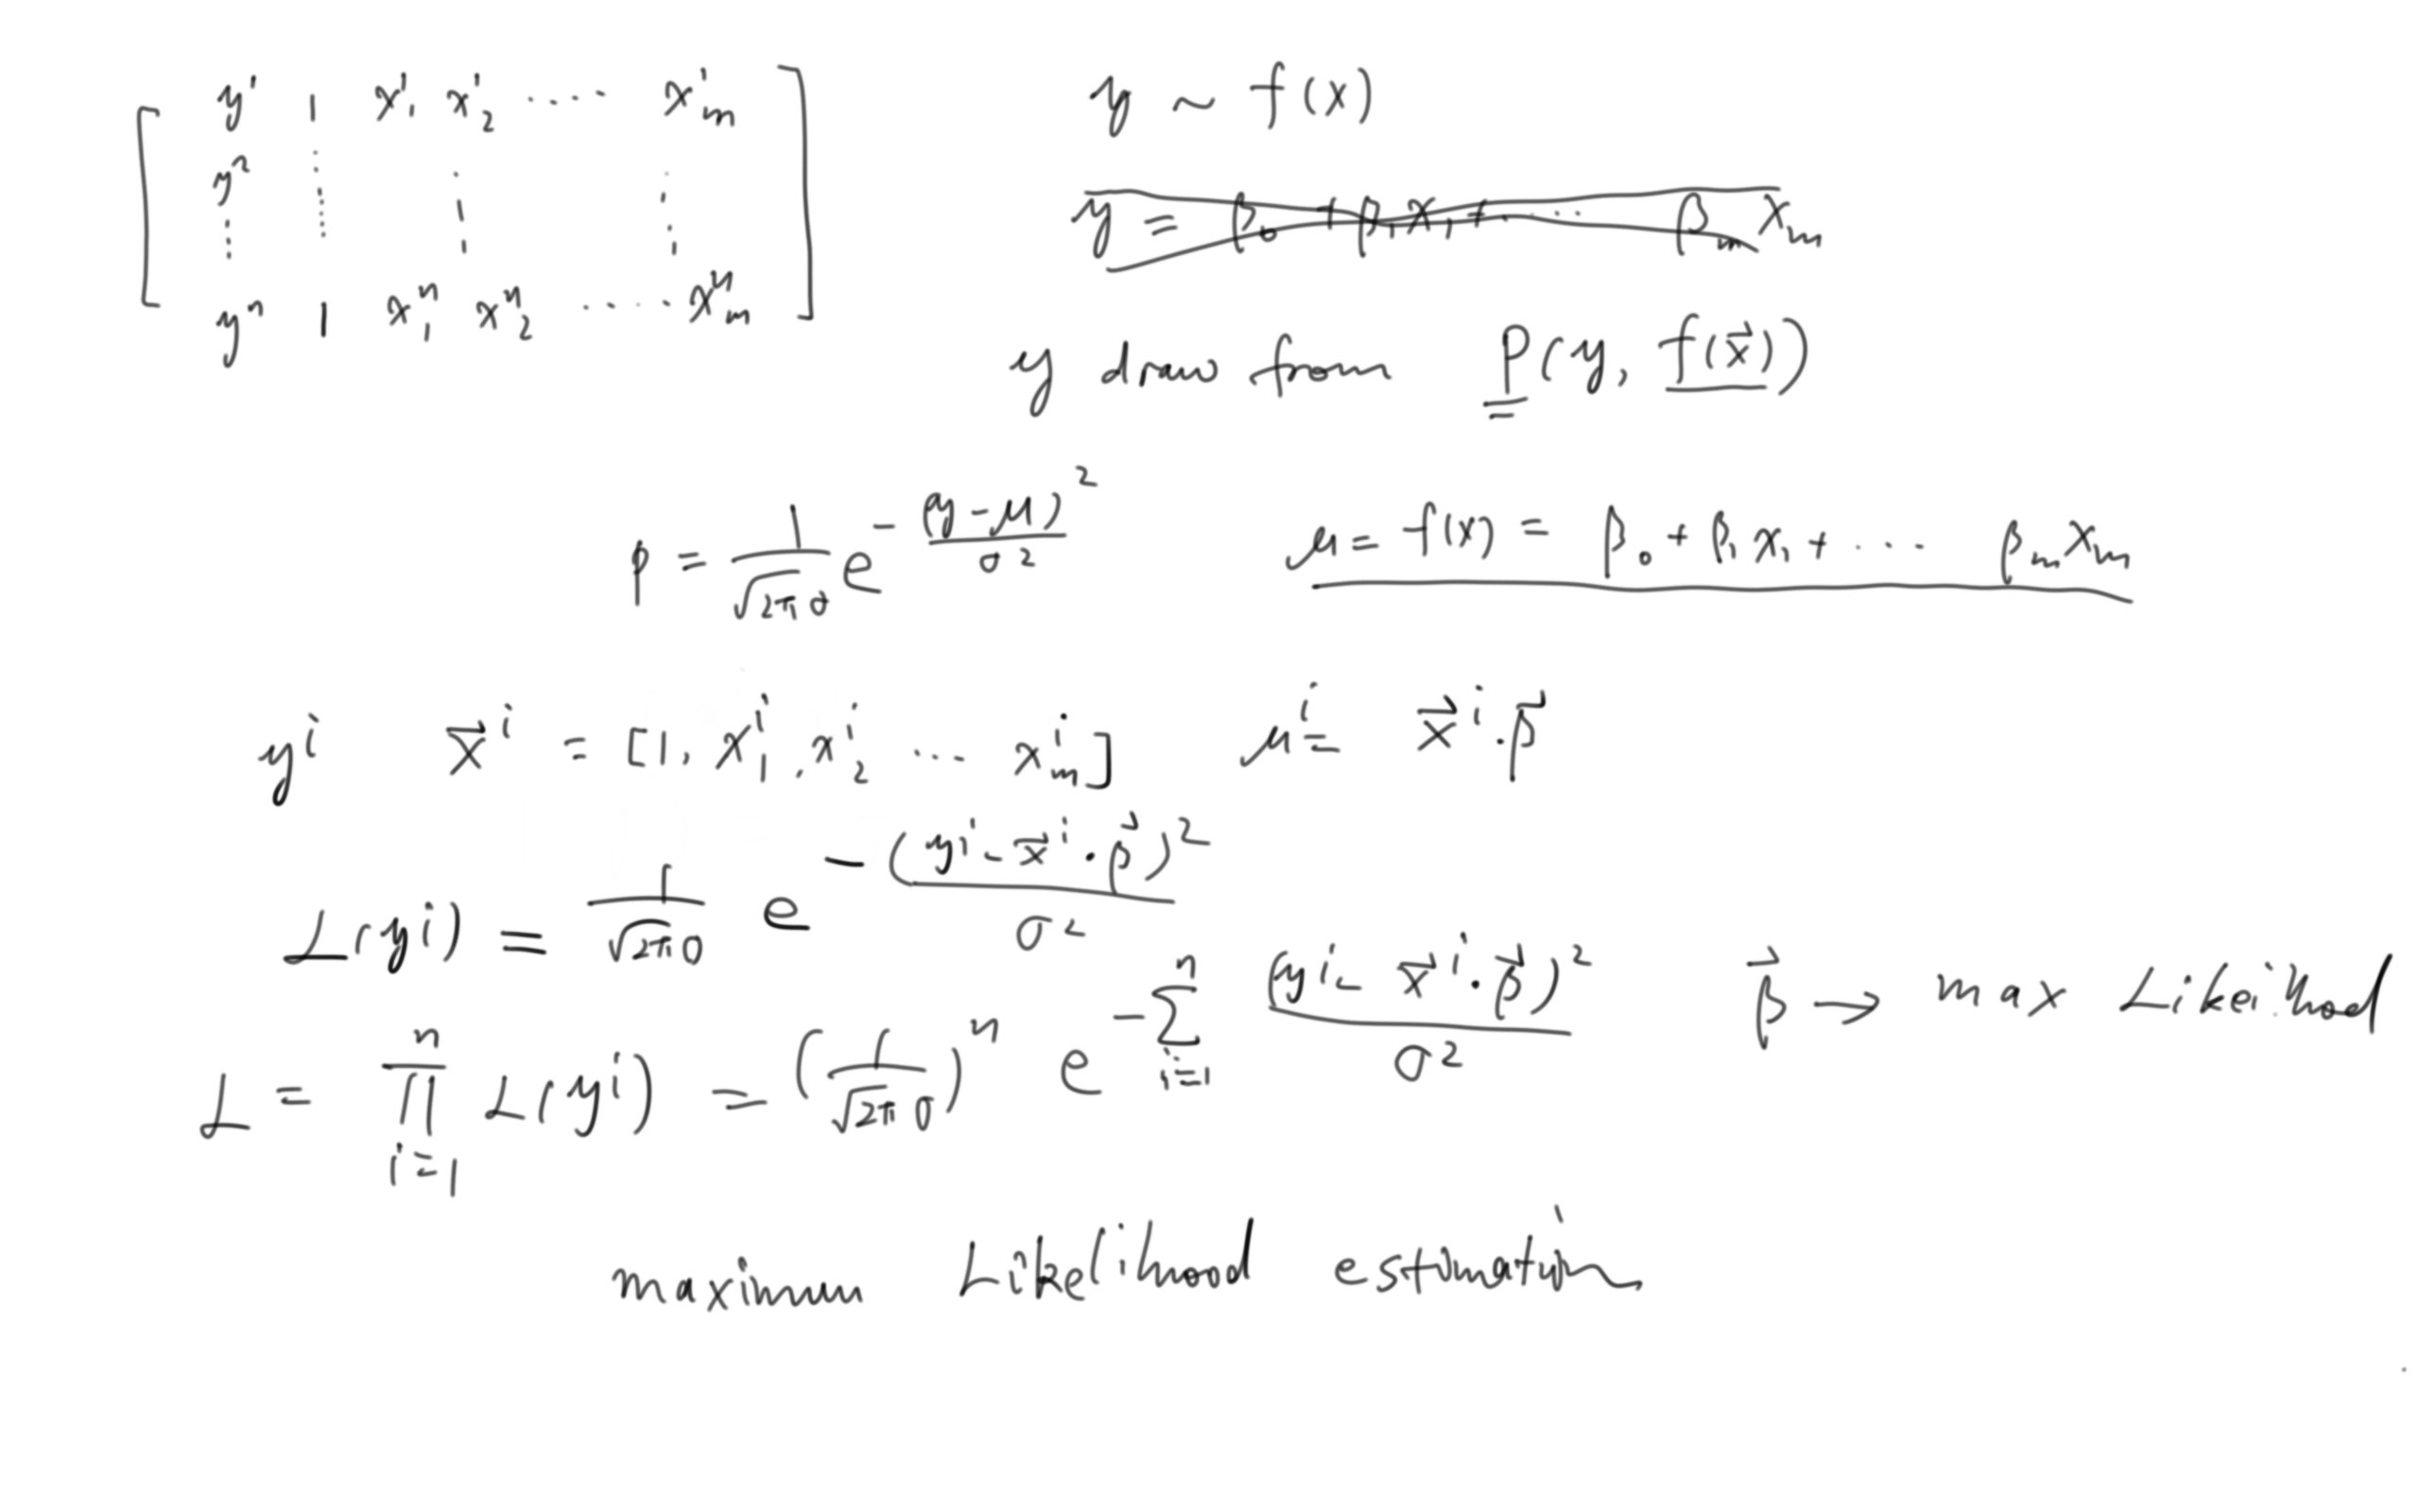 y¹ 1 x₁¹ x₂¹ ···· x¹ₘ
y²
yⁿ 1 x₁ⁿ x₂ⁿ ···· xⁿₘ
y ~ f(x)
y = β₀ + β₁x₁ + ···· βₘxₘ
y draw from P(y, f(x⃗))
p = 1/√2πσ e^-(y-μ)²/σ² μ = f(x) = β₀ + β₁x₁ + ···· βₘxₘ
yⁱ x⃗ⁱ = [1, x₁ⁱ, x₂ⁱ ··· xₘⁱ] μⁱ = x⃗ⁱ·β⃗
L(yⁱ) = 1/√2πσ e^-(yⁱ-x⃗ⁱ·β⃗)²/σ²
L = ∏ⁿᵢ₌₁ L(yⁱ) = (1/√2πσ)ⁿ e^-∑ⁿᵢ₌₁ (yⁱ-x⃗ⁱ·β⃗)²/σ² β⃗ → max Likeihood
maximum Likelihood estimation